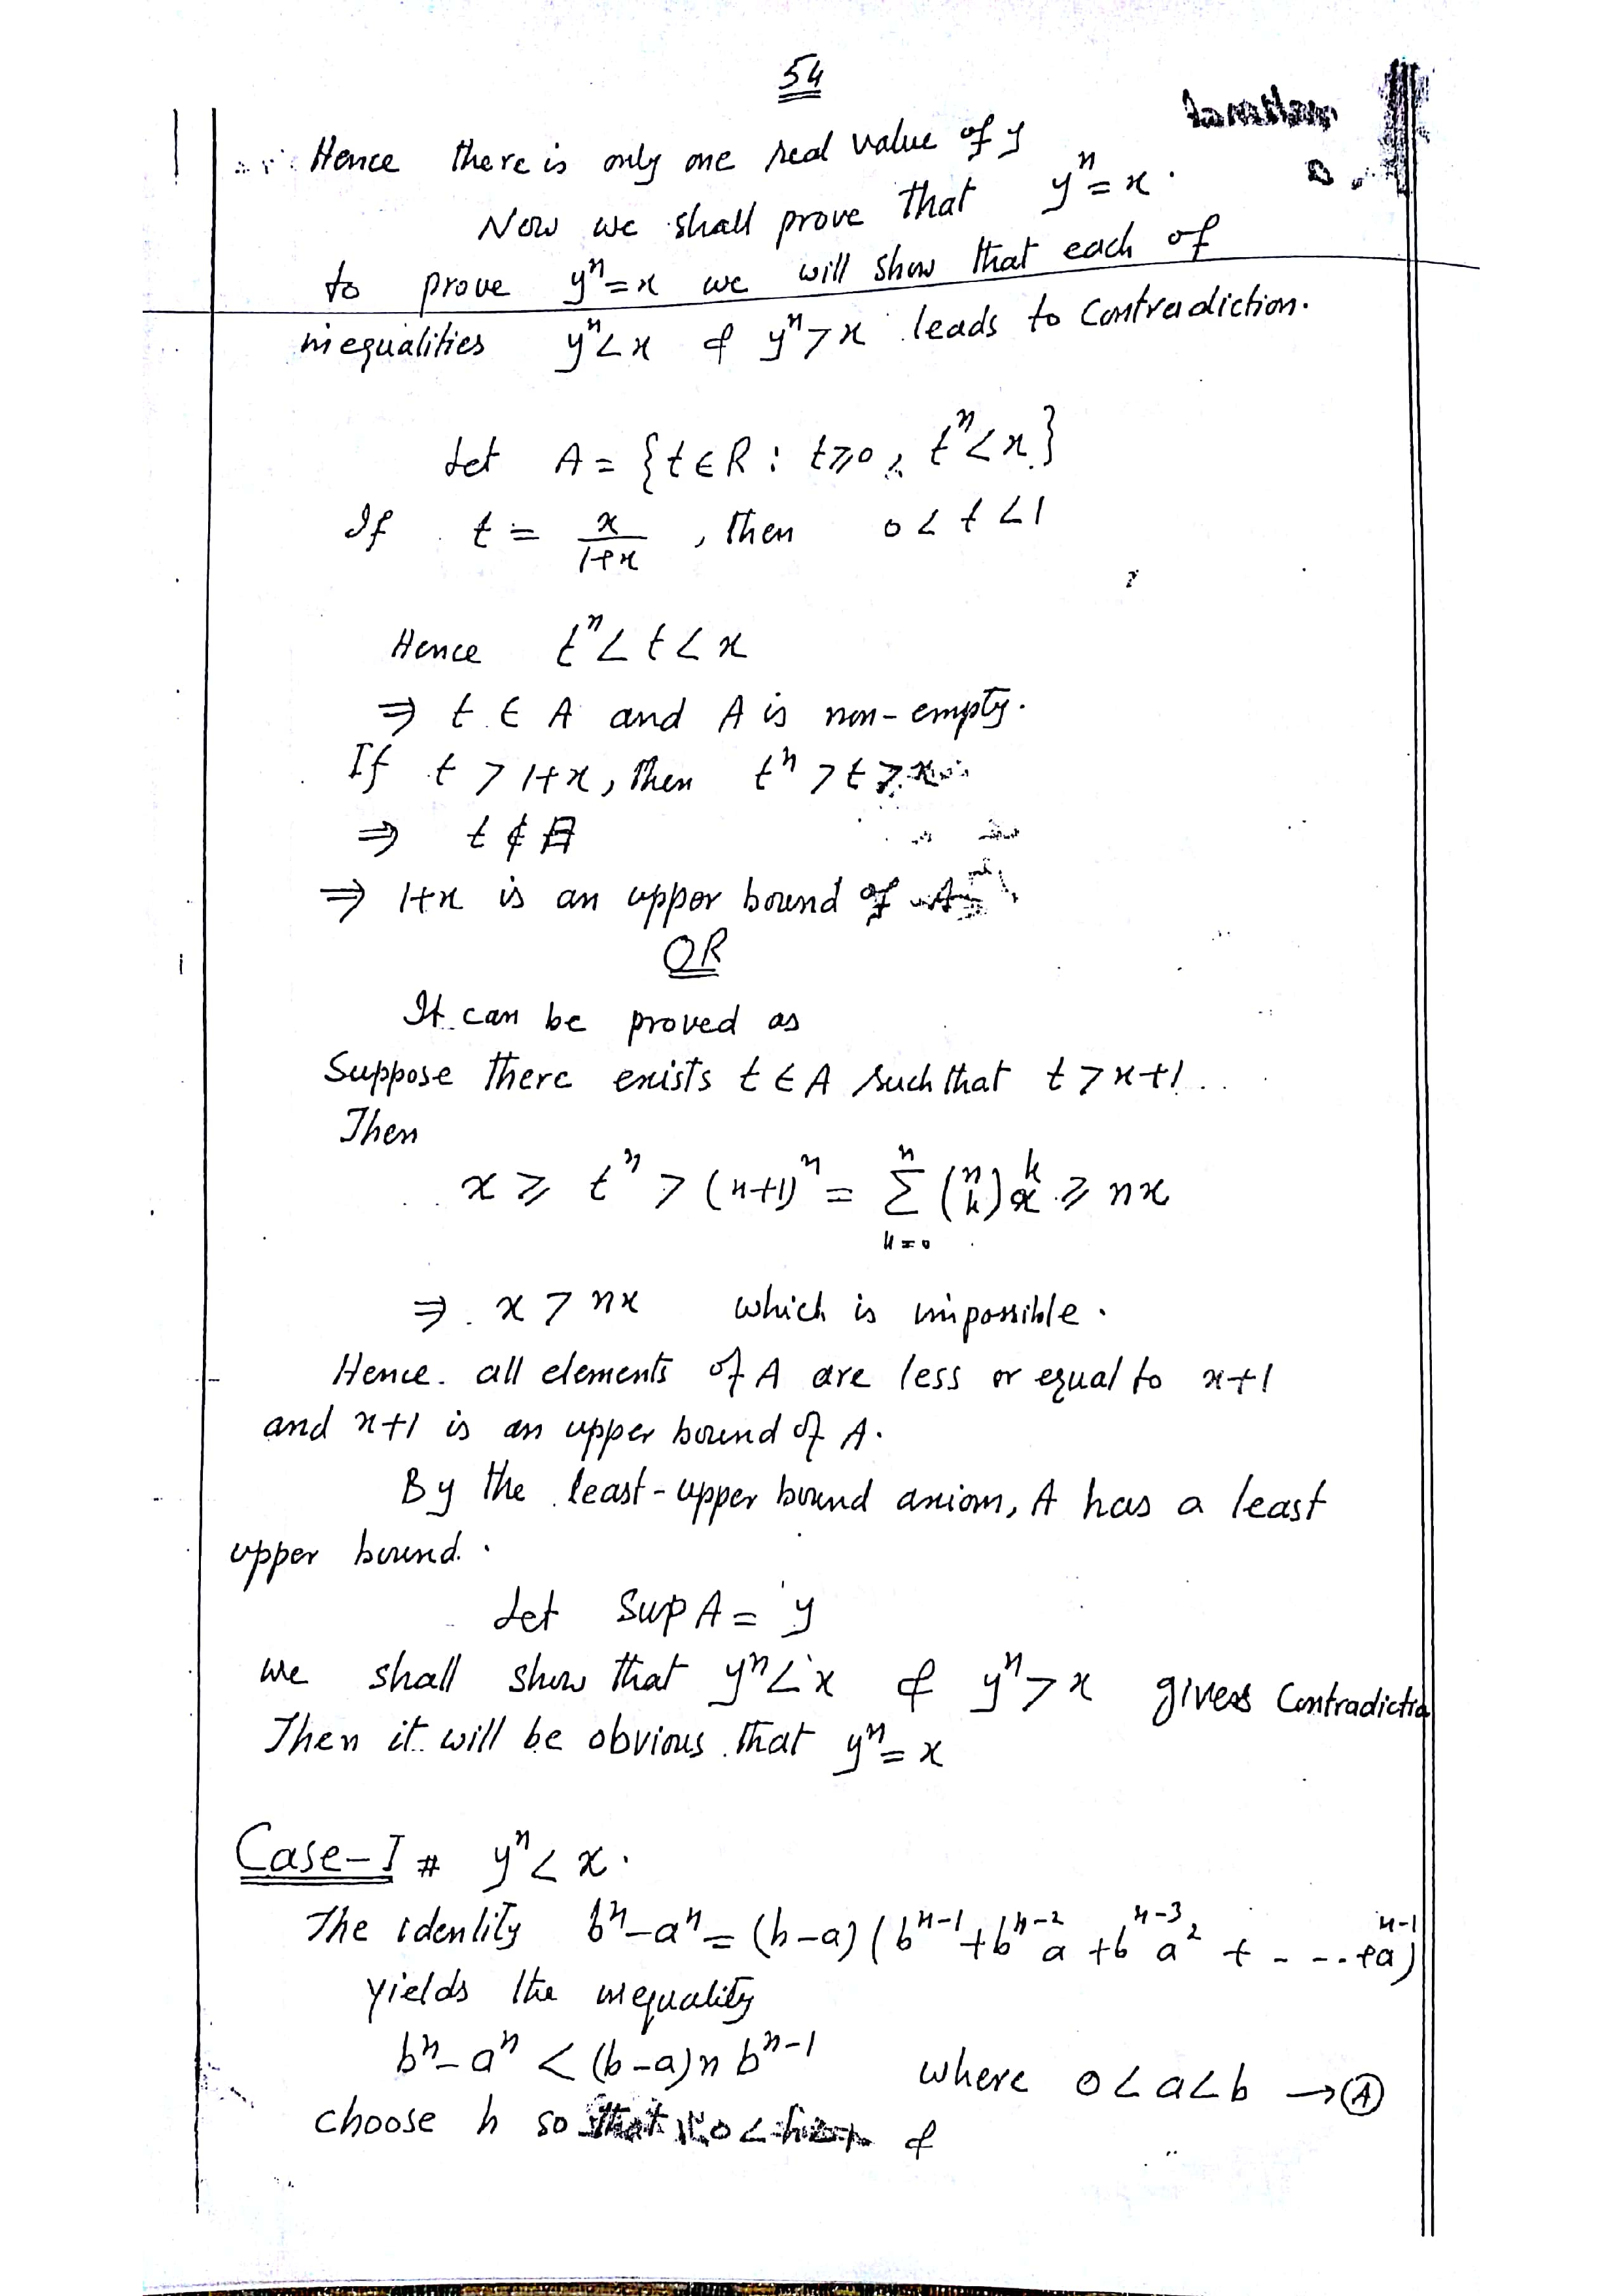 54
Hence there is only one real value of y
Now we shall prove that yⁿ = x.
to prove yⁿ = x we will show that each of
inequalities yⁿ < x & yⁿ > x leads to Contradiction.
Let A = {t ∈ R : t ≥ 0, tⁿ < x}
If t = x/(1+x), then 0 < t < 1
Hence tⁿ < t < x
⇒ t ∈ A and A is non-empty.
If t > 1+x, then tⁿ > t > x
⇒ t ∉ A
⇒ 1+x is an upper bound of A
OR
It can be proved as
Suppose there exists t ∈ A such that t > x+1
Then
x ≥ tⁿ > (x+1)ⁿ = Σ_{k=0}^{n} (n k) x^k ≥ nx
⇒ x > nx which is impossible.
Hence all elements of A are less or equal to x+1
and x+1 is an upper bound of A.
By the least-upper bound axiom, A has a least
upper bound.
Let Sup A = y
we shall show that yⁿ < x & yⁿ > x gives Contradictio
Then it will be obvious that yⁿ = x
Case-I # yⁿ < x.
The identity bⁿ - aⁿ = (b-a)(bⁿ⁻¹ + bⁿ⁻² a + bⁿ⁻³ a² + - - - . + aⁿ⁻¹)
yields the inequality
bⁿ - aⁿ < (b-a) n bⁿ⁻¹ where 0 < a < b → Ⓐ
choose h so that 0 < h &